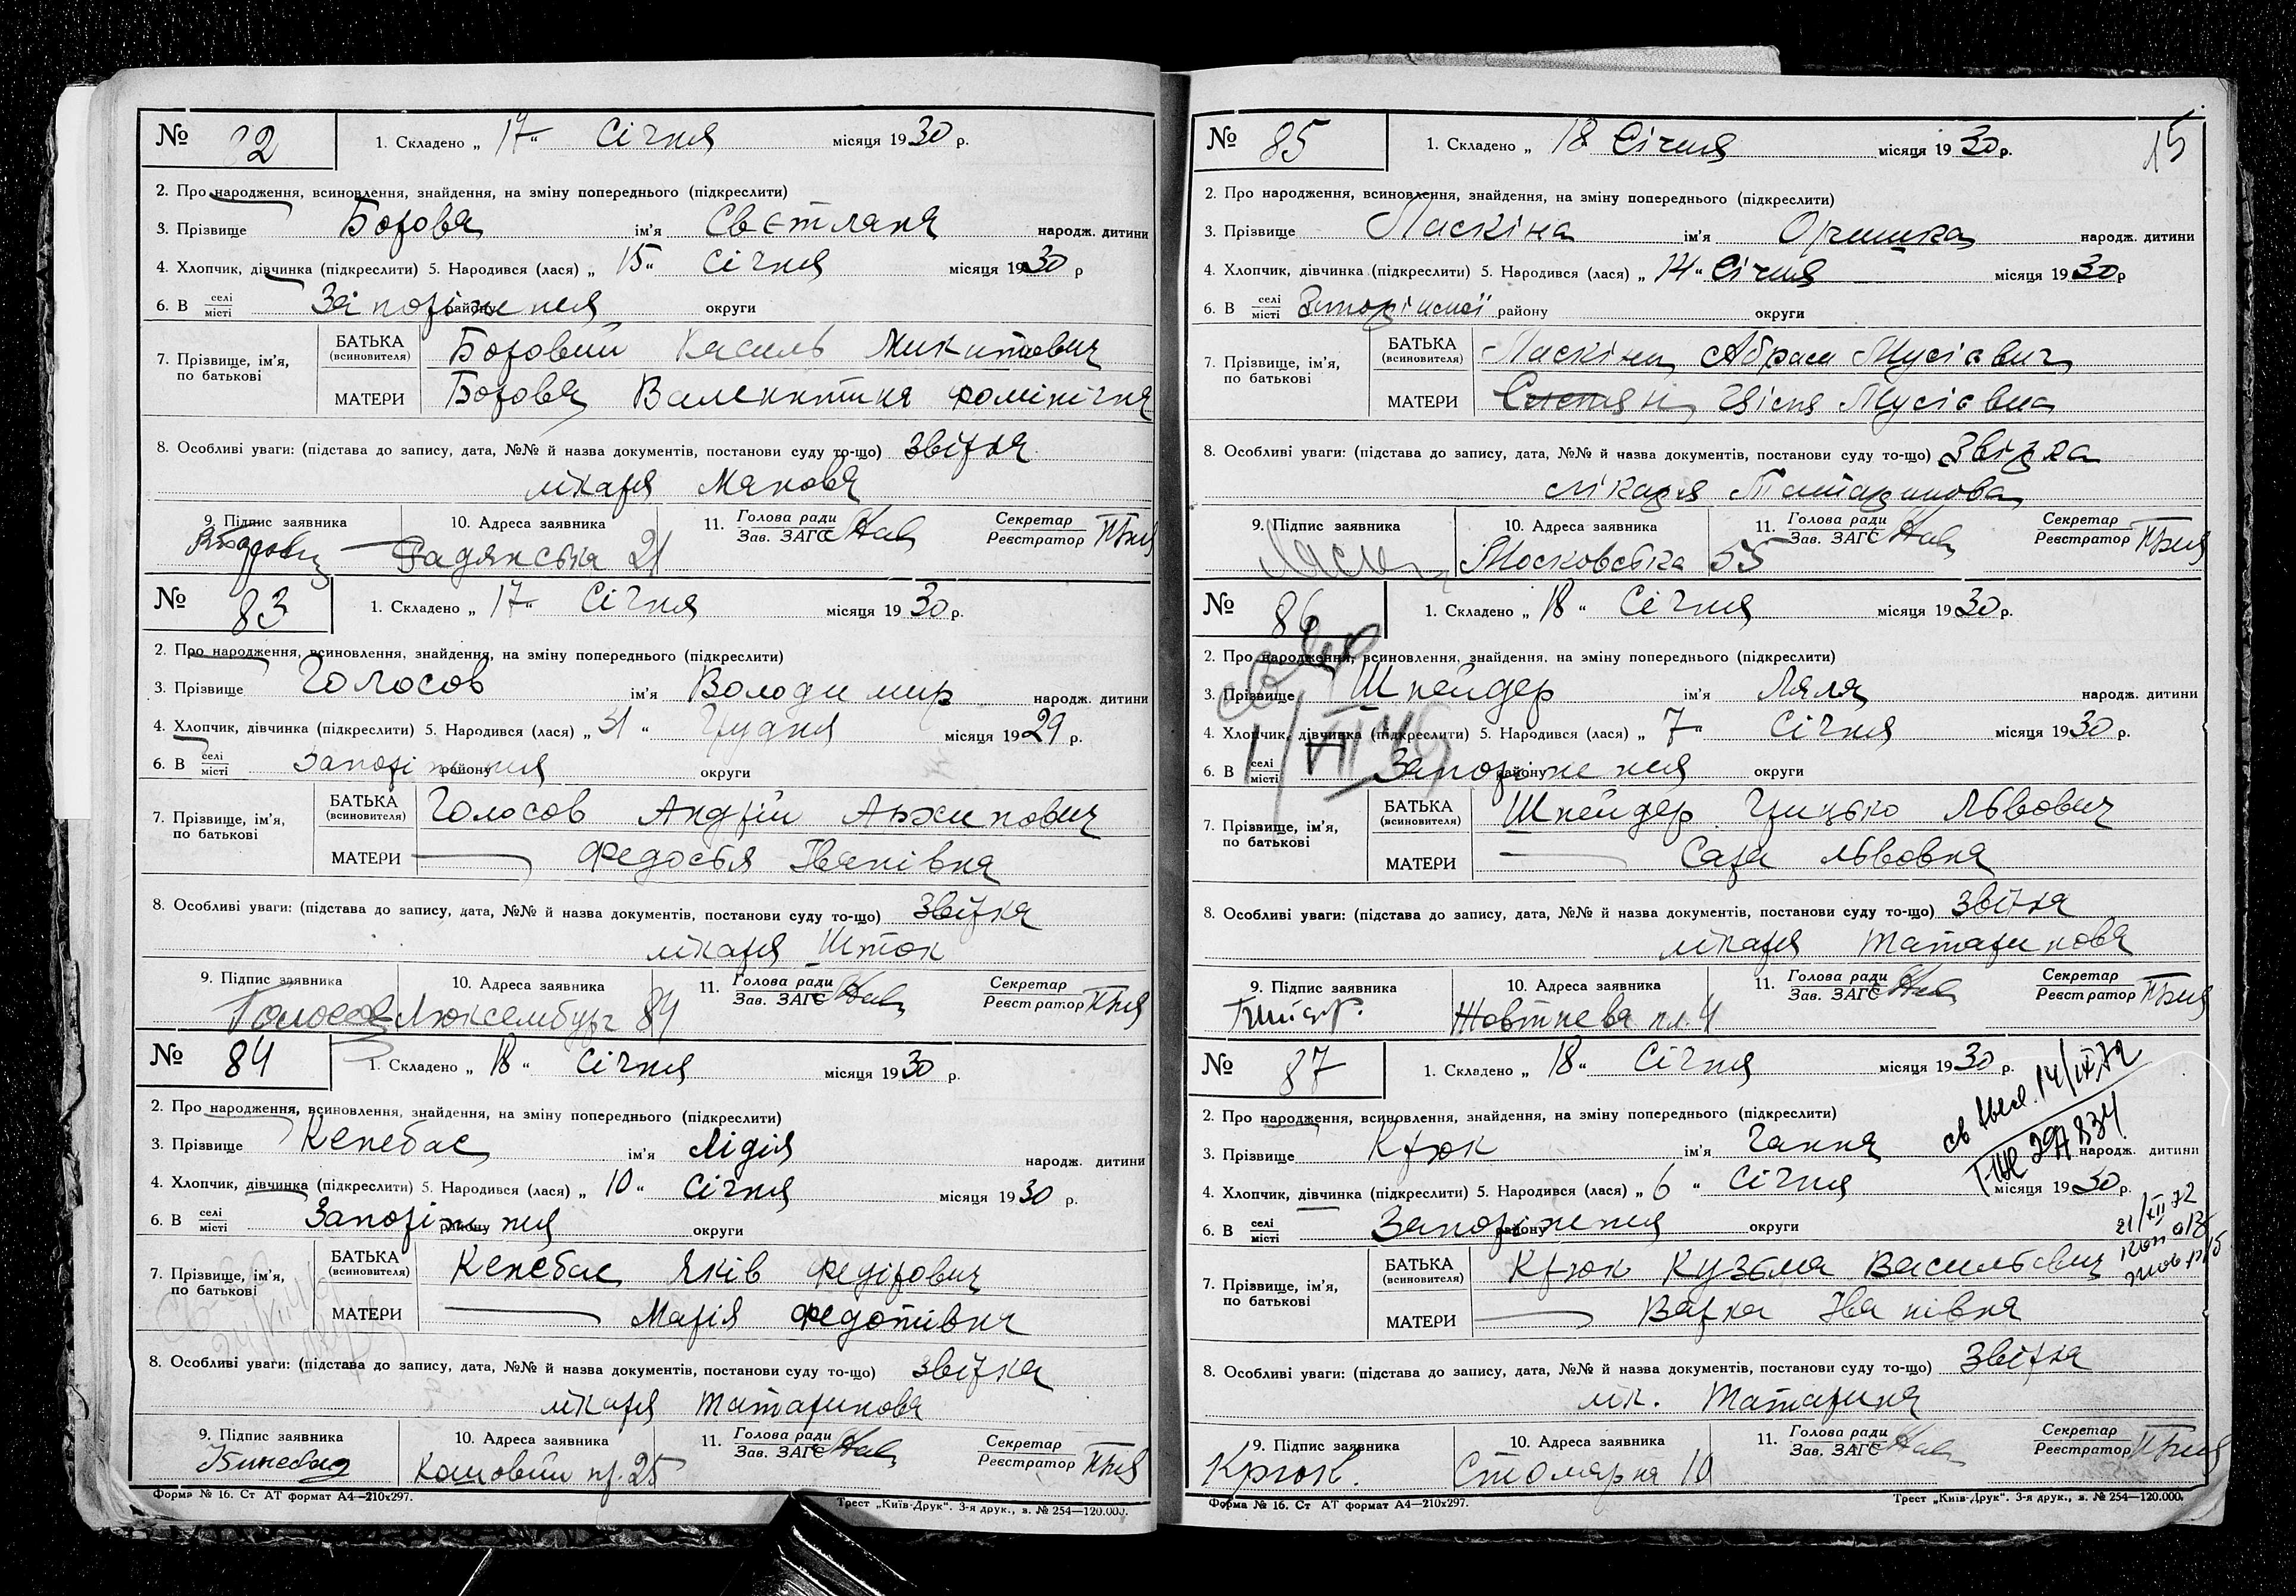 № 82 1. Складено „ 17 “ Січня місяця 1930 р.
2. Про народження, всиновлення, знайдення, на зміну попереднього (підкреслити)
3. Прізвище Борова ім'я Свєтлана народж. дитини
4. Хлопчик, дівчинка (підкреслити) 5. Народився (лася) „ 15 “ Січня місяця 1930 р
6. В селі місті Запоріжжя району округи
7. Прізвище, ім'я, по батькові
БАТЬКА (всиновителя) Боровий Василь Микитович
МАТЕРИ Борова Валентина Фомінічна
8. Особливі уваги: (підстава до запису, дата, №№ й назва документів, постанови суду то-що) Звітка
лікаря Манова
9. Підпис заявника 10. Адреса заявника 11. Голова ради Зав. ЗАГС Секретар Реєстратор
Радянська 21
№ 83 1. Складено „ 17 “ Січня місяця 1930 р.
2. Про народження, всиновлення, знайдення, на зміну попереднього (підкреслити)
3. Прізвище Голосов ім'я Володимир народж. дитини
4. Хлопчик, дівчинка (підкреслити) 5. Народився (лася) „ 31 “ Грудня місяця 1929 р.
6. В селі місті Запоріжжя району округи
7. Прізвище, ім'я, по батькові
БАТЬКА (всиновителя) Голосов Андрій Архипович
МАТЕРИ — Федосья Іванівна
8. Особливі уваги: (підстава до запису, дата, №№ й назва документів, постанови суду то-що) Звітка
лікаря Шток
9. Підпис заявника 10. Адреса заявника 11. Голова ради Зав. ЗАГС Секретар Реєстратор
Голосов Люксембург 84
№ 84 1. Складено „ 18 “ Січня місяця 1930 р.
2. Про народження, всиновлення, знайдення, на зміну попереднього (підкреслити)
3. Прізвище Кенебас ім'я Лідія народж. дитини
4. Хлопчик, дівчинка (підкреслити) 5. Народився (лася) „ 10 “ Січня місяця 1930 р.
6. В селі місті Запоріжжя району округи
7. Прізвище, ім'я, по батькові
БАТЬКА (всиновителя) Кенебас Яків Федірович
МАТЕРИ — Марія Федотівна
8. Особливі уваги: (підстава до запису, дата, №№ й назва документів, постанови суду то-що) Звітка
лікаря Татаринова
9. Підпис заявника 10. Адреса заявника 11. Голова ради Зав. ЗАГС Секретар Реєстратор
Кошовий пр. 25
Форма № 16. Ст АТ формат А4—210x297. Трест „Київ-Друк“. 3-я друк., в. № 254—120.000.
15
№ 85 1. Складено „ 18 Січня місяця 1930 р.
2. Про народження, всиновлення, знайдення, на зміну попереднього (підкреслити)
3. Прізвище Ласкіна ім'я народж. дитини
4. Хлопчик, дівчинка (підкреслити) 5. Народився (лася) „ 14 “ Січня місяця 1930 р
6. В селі місті району округи
7. Прізвище, ім'я, по батькові
БАТЬКА (всиновителя) Ласкін Абрам Мусієвич
МАТЕРИ Мусієвна
8. Особливі уваги: (підстава до запису, дата, №№ й назва документів, постанови суду то-що) Звізка
лікаря Татаринова
9. Підпис заявника 10. Адреса заявника 11. Голова ради Зав. ЗАГС Секретар Реєстратор
Московська 55
№ 86 1. Складено „ 18 “ Січня місяця 1930 р.
2. Про народження, всиновлення, знайдення, на зміну попереднього (підкреслити)
3. Прізвище Шнейдер ім'я Ляля народж. дитини
4. Хлопчик, дівчинка (підкреслити) 5. Народився (лася) „ 7 “ Січня місяця 1930 р.
6. В селі місті Запоріжжя району округи
7. Прізвище, ім'я, по батькові
БАТЬКА (всиновителя) Шнейдер Грицько Львович
МАТЕРИ — Сара Львовна
8. Особливі уваги: (підстава до запису, дата, №№ й назва документів, постанови суду то-що) Звітка
лікаря Татаринова
9. Підпис заявника 10. Адреса заявника 11. Голова ради Зав. ЗАГС Секретар Реєстратор
Жовтнева пл. 4
№ 87 1. Складено „ 18 “ Січня місяця 1930 р.
2. Про народження, всиновлення, знайдення, на зміну попереднього (підкреслити)
3. Прізвище Крюк ім'я Ганна народж. дитини
4. Хлопчик, дівчинка (підкреслити) 5. Народився (лася) „ 6 “ Січня місяця 1930 р.
6. В селі місті Запоріжжя району округи
7. Прізвище, ім'я, по батькові
БАТЬКА (всиновителя) Крюк Кузьма Васильевич
МАТЕРИ — Варка Іванівна
8. Особливі уваги: (підстава до запису, дата, №№ й назва документів, постанови суду то-що) Звітка
лік. Татарина
9. Підпис заявника 10. Адреса заявника 11. Голова ради Зав. ЗАГС Секретар Реєстратор
Крюк. Столярна 10
Форма № 16. Ст АТ формат А4—210x297. Трест „Київ-Друк“. 3-я друк., в. № 254—120.000.